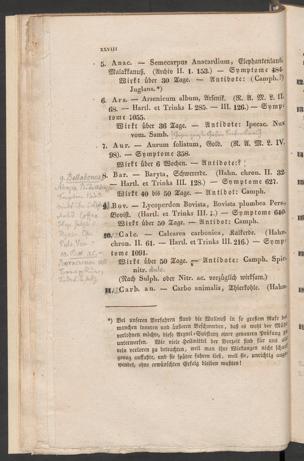 XXVIII
5. Anac. — Semecarpus Anacardium, Elephantenlaus,
Malakkanuß. (Archiv II. 1. 153.) — Symptome 484.
Wirkt über 30 Tage. — Antidote: (Camph.?)
Juglans.*)
6. Ars. — Arsenicum album, Arsenik. (R. A. M. L. II.
68. — Hartl. et Trinks I. 285. — III. 126.) — Symp-
tome 1055.
Wirkt über 36 Tage. — Antidote: Ipecac. Nux
vom. Samb.
7. Aur. — Aurum foliatum, Gold. (R. A. M. L. IV.
98). — Symptome 358.
Wirkt über 6 Wochen. — Antidote:
8. Bar. — Baryta, Schwererde. (Hahn. chron. II. 32.
— Hartl. et Trinks III. 128.) — Symptome 627.
Wirkt 40 bis 50 Tage. — Antidot: Camph.
9. Belladonna
Bov. — Lycoperdon Bovista, Bovista plumbea Pers.,
Bovist. (Hartl. et Trinks III. 1.) — Symptome 640.
Wirkt über 50 Tage. — Antidot: Camph.
10. Calc. — Calcarea carbonica, Kalkerde. (Hahn.
chron. II. 61. — Hartl. et Trinks III. 216.) — Symp-
tome 1091.
Wirkt über 50 Tage. — Antidote: Camph. Spir.
nitr. dulc.
(Nach Sulph. oder Nitr. ac. vorzüglich wirksam.)
Carb. an. — Carbo animalis, Thierkohle. (Hahn.
*) Bei unserem Verfahren stand die Wallnuß in so großem Rufe bei
manchen inneren und äußeren Beschwerden, daß es wohl der Mühe
verlohnen möchte, diese Arznei einer genauen Prüfung zu
unterwerfen. Wie viele Heilmittel der Vorzeit sind für uns als
rein verloren zu betrachten, weil man ihre Wirkungen nicht scharf
genug auffaßte, und sie später fahren ließ, weil sie, unrichtig ange-
wendet, ohne erwünschten Erfolg bleiben mußten!